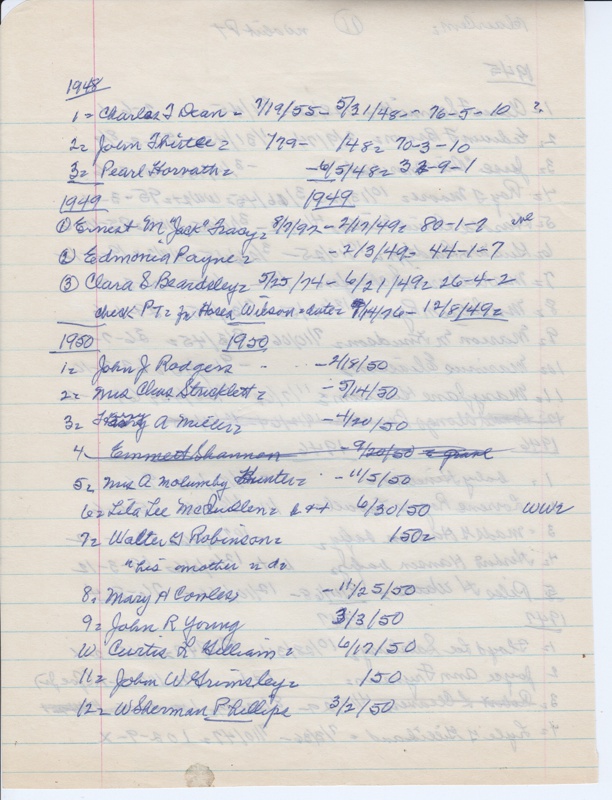 1948
1= Charles T Dean - 7/19/55 - 5/31/48 - - 76-5-10 ?
2= John Thirtle = 1/79 - 148= 70-3-10
3= Pearl Horvath = - 6/5/48= 32-9-1
1949 1949
① Ernest M "Jack" Tracy= 8/7/92 - 2/17/49= 80-1-2
② Edmonia Payne= - 2/3/49- 44-1-7
③ Clara S Beardsley= 5/25/74 - 6/21/49= 26-4-2
check PT= for Hosea Wilson = date= 9/14/76 - 12/8/49=
1950 1950
1= John J. Rodgers - - - 2/18/50
2= Mrs Chas Stricklett= - 5/14/50
3= A Miller= - 1/20/50
4 Emmett Shannon - 9/20/50 = grave
5= Mrs A Molumby Hunter= - 11/5/50
6= Lila Lee 6/30/50 WW2
7= Walter G Robinson= 150=
"his mother n d=
8= Mary A Conless - 11/25/50
9= John R Young 3/3/50
10 Curtis L Gilliam= 6/17/50
11= John W Grimsley= 150
12= W Sherman Phillips 3/2/50